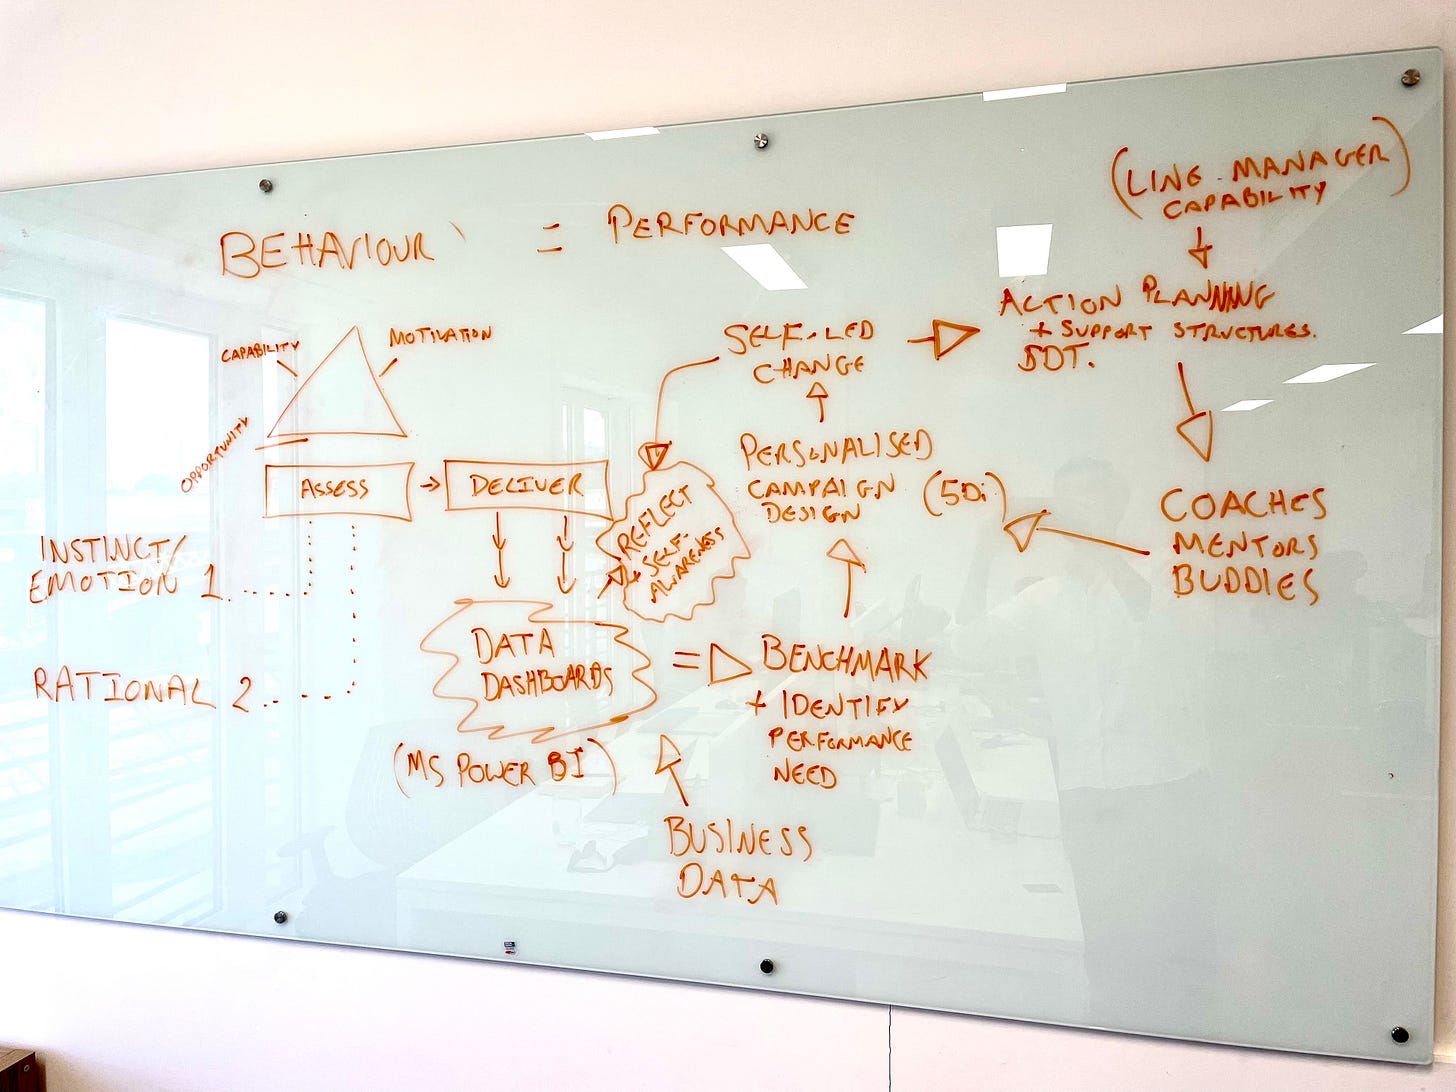 BEHAVIOUR = PERFORMANCE
(LINE MANAGER)
CAPABILITY
CAPABILITY
MOTIVATION
OPPORTUNITY
ASSESS → DELIVER
INSTINCT/
EMOTION 1
RATIONAL 2
DATA
DASHBOARDS
(MS POWER BI)
REFLECT
+ SELF-
AWARENESS
BUSINESS
DATA
= BENCHMARK
+ IDENTIFY
PERFORMANCE
NEED
PERSONALISED
CAMPAIGN
DESIGN
(5Di)
SELF-LED
CHANGE
ACTION PLANNING
+ SUPPORT STRUCTURES.
COACHES
MENTORS
BUDDIES